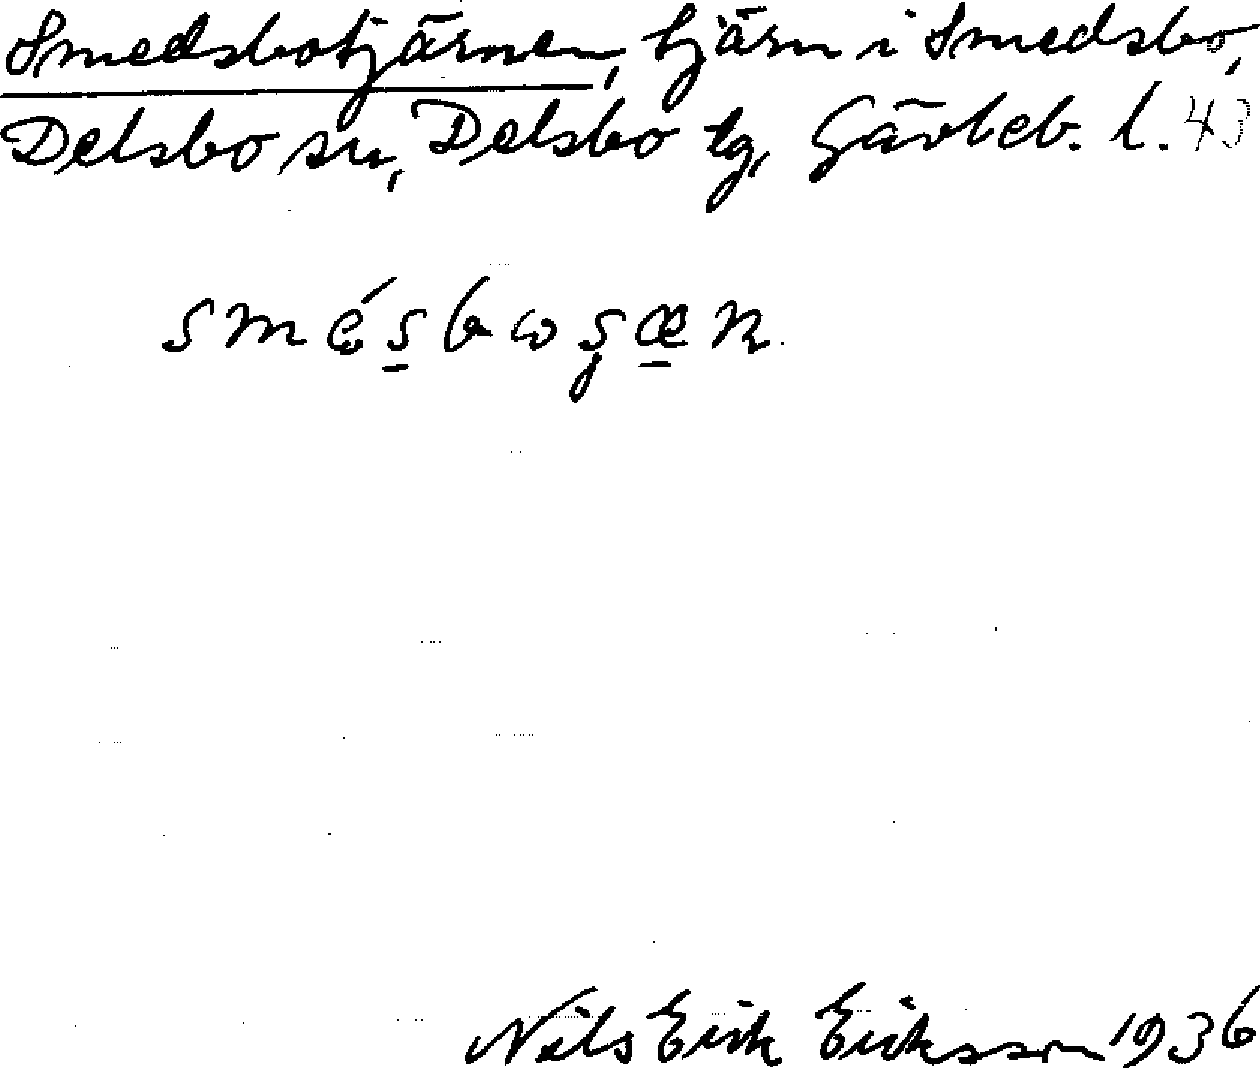 Smedsbotjärnen, tjärn i Smedsbo,
Delsbo sn, Delsbo tg, Gävleb. l. 43
Nils Erik Eriksson 1936